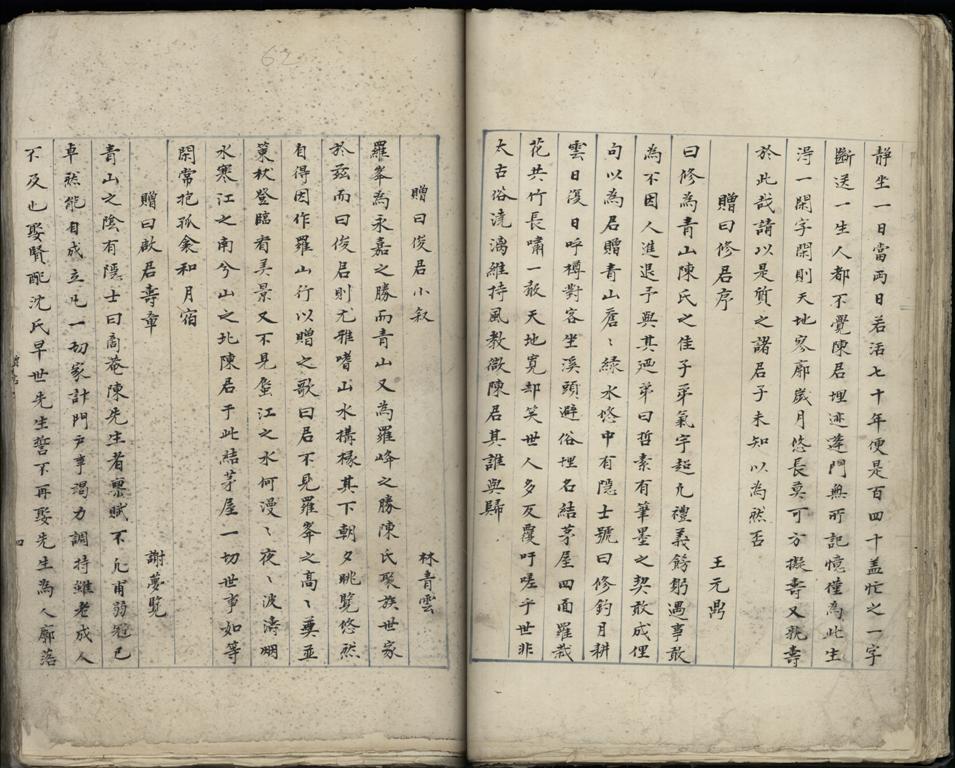 靜坐一日當兩日若活七十年便是百四十盖忙之一字
斷送一生人都不覺陳居埋迹蓬門無所記憶僅為此生
淂一閑字閑則天地寥廓歲月悠長莫可方擬壽又孰壽
於此㢤請以是質之諸君子未知以為然否
贈曰修居序 王元鼎
曰修為青山陳氏之佳子弟氣宇超凢禮義餝躬遇事敢
為不因人進退予與其廼弟曰哲素有筆墨之契敢成俚
句以為居贈青山蒼〻緑水悠中有隠士號曰修釣月耕
雲日復日呼樽對客坐溪頭避俗埋名結茅屋四面羅栽
花共竹長嘯一敨天地寛却笑世人多反覆吁嗟乎世非
太古俗澆漓維持風教欲陳居其誰與歸
62
贈曰俊居小叙 林青雲
羅峯為永嘉之勝而青山又為羅峰之勝陳氏聚族世家
於兹而曰俊居則尤雅嗜山水構椽其下朝夕眺覽悠然
自得因作羅山行以贈之歌曰居不見羅峯之高〻奠並
東枕登臨看美景又不見蜃江之水何漫〻夜〻波濤烟
水寒江之南兮山之北陳居于此結茅屋一切世事如等
閑常抱孤衾和月宿
贈曰畝居壽章 謝夢覧
青山之陰有隠士曰啇菴陳先生者禀賦不凢甫弱冠已
卓然能自成立凢一切家計門户事竭力調持雖老成人
不及也娶賢配沈氏早世先生誓不再娶先生為人廓落
四